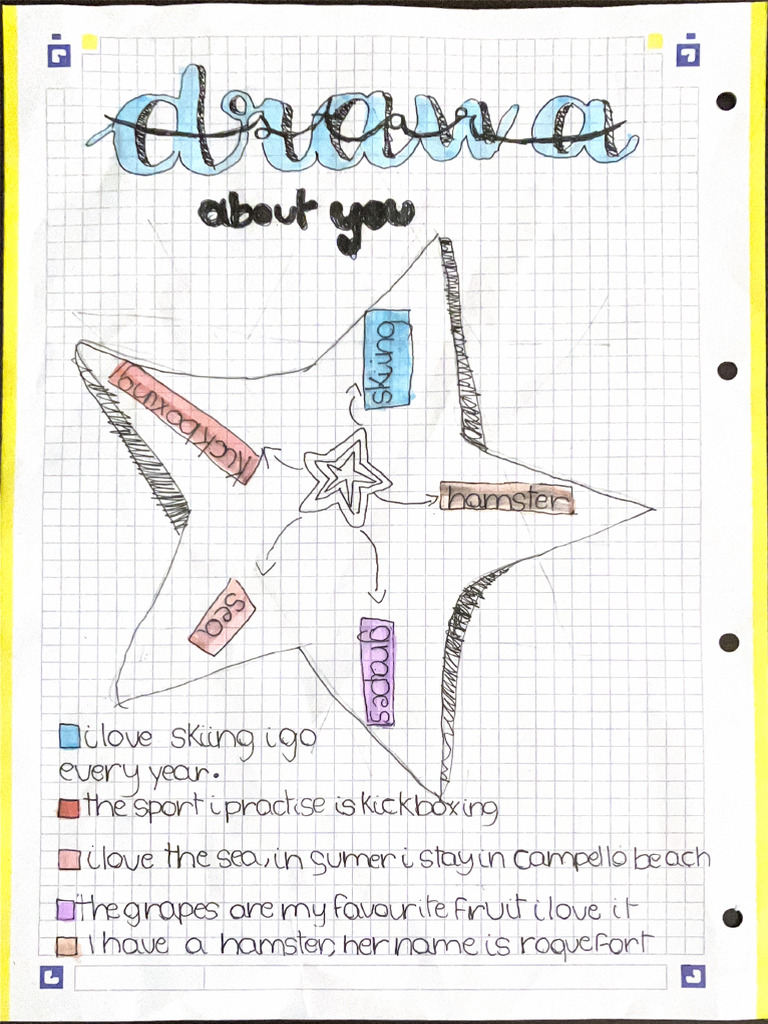 draw a
star
about you
skiing
kickboxing
hamster
sea
grapes
i love skiing i go
every year.
the sport i practise is kickboxing
i love the sea, in sumer i stay in campello beach
the grapes are my favourite fruit i love it
I have a hamster, her name is roquefort